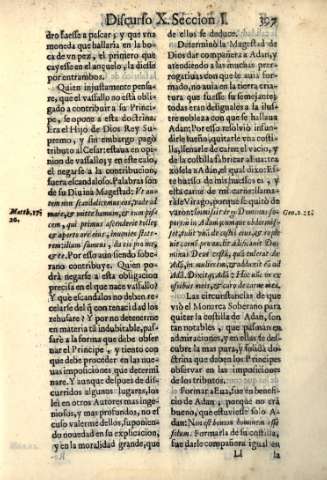 Discurso X. Seccion I.
397
dro fuesse a pescar; y que vna
moneda que hallaria en la bo-
ca de vn pez, el primero que
cayesse en el anzuelo, la diesse
por entrambos.
Quien injustamente pensa-
re, que el vassallo no està obli-
gado a contribuir a su Princi-
pe, se opone a esta doctrina:
Era el Hijo de Dios Rey Su-
premo, y sin embargo pagò
tributo al Cesar: estaua en opi-
nion de vassallo; y en este caso,
el negarse a la contribucion,
fuera escandaloso. Palabras son
de su Diuina Magestad: Et au-
tem non scandalicemus eos, vade ad
mare, & mitte hamum, & eum pis-
cem, qui primus ascenderit tolle;
& aperto ore eius, inuenies state-
rem: illum sumens, da eis pro me,
& te. Por esso aun siendo sobe-
rano contribuye. Quien po-
drà negarse a esta obligacion
precisa en el que nace vassallo?
Y què escandalos no deben re-
celarse del q̃ con tenacidad los
rehusare? Y por no detenerme
en materia tã indubitable, pas-
sarè a la forma que debe obser-
nar el Principe, y tiento con
que debe proceder en las nue-
uas imposiciones que determi-
nare. Y aunque despues de dis-
curridos algunos lugares, los
leì en otros Autores mas inge-
niosos, y mas profundos, no es-
cuso valerme dellos, suponien-
do nouedad en su explicacion,
y en la moralidad grande, que
Matth. 17;
26.
de ellos se deduce.
Determinò la Magestad de
Dios dar compañera a Adan, y
atendiendo a las muchas prer-
rogatiuas con que le auia for-
mado, no auia en la tierra cria-
tura que fuesse su semejante:
todas eran desiguales a la ilus-
tre nobleza con que se hallaua
Adan: Por esso resoluiò infun-
dirle sueño, quitarle vna costi-
lla, llenarle de carne el vacio, y
de la costilla fabricar a Eua: tra-
xosela a Adan, el qual dixo: Es-
te huesso de mis huessos es, y
esta carne de mi carne: llama-
rase Virago, porque se quitò de
varon: Immisit ergo Dominus so-
porem in Adam; cumque obdormis-
set, tulit vnam de costis eius, & rep-
Gen. 2. 21.
Dixitque Adã: Hoc nũc os ex
ossibus meis, & caro de carne mea.
Las circunstancias de que
vsò el Monarca Soberano para
quitar la costilla de Adan, son
tan notables, que pasman en
admiraciones, y en ellas se des-
cubre la mas pura, y solida do-
ctrina que deben los Principes
obseruar en las imposiciones
de los tributos.
Formar a Eua, fue en benefi-
cio de Adan, porque no era
bueno, que estuuiesse solo A-
dan: Non est bonum hominem esse
solum. Formarla de su costilla,
fue darle compañera igual en
Ll
la